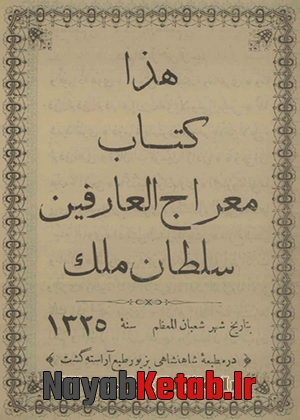 هذا
كتاب
معراج العارفين
سلطان ملك
بتاريخ شهر شعبان المعظم سنة ١٣٢٥
در مطبعهٔ شاهنشاهی بزیور طبع آراسته گشت
NayabKetab.Ir